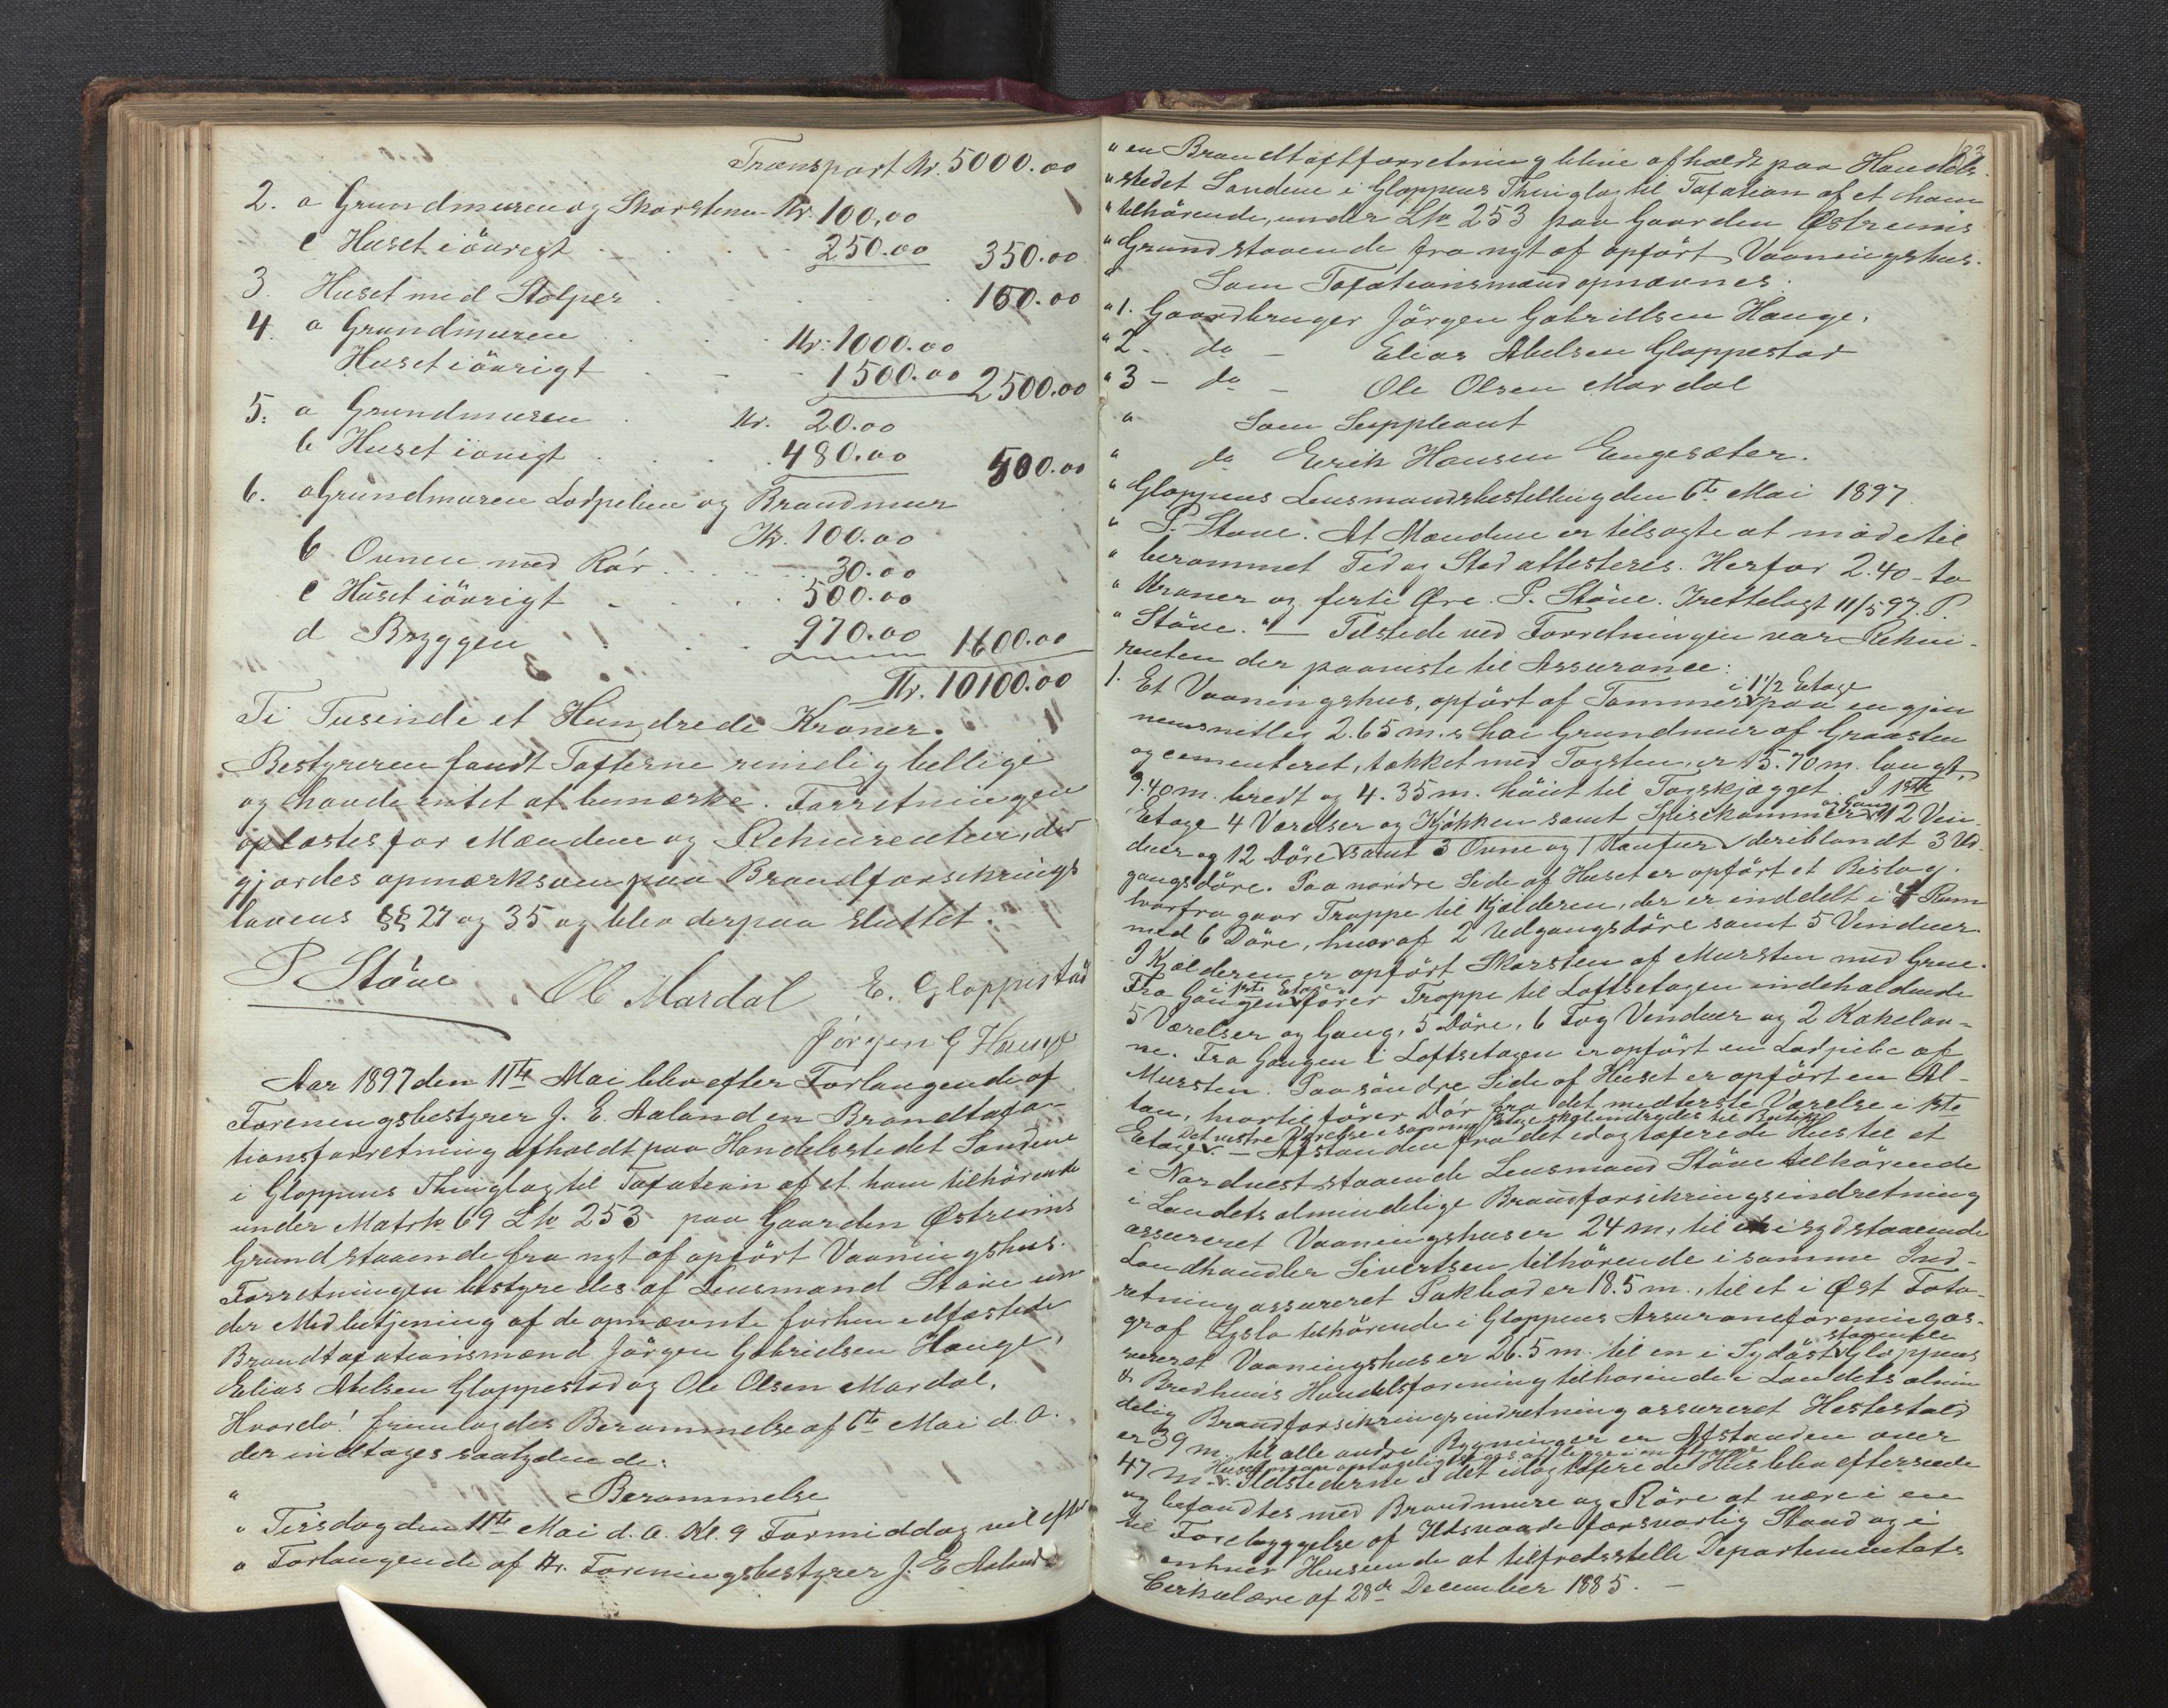 Transport Kr. 5000.00
2. a Grundmuren og Skorstenen Kr. 100,00
c Huset iövrigt 250.00 350.00
3. Huset med Stolper 150.00
4. a Grundmuren Kr. 1000.00
Huset iövrigt 1500.00 2500.00
5. a Grundmuren Kr. 20.00
b Huset iövrigt 480.00 500.00
6. a Grundmuren Lodpiben og Brandmur
Kr. 100.00
b Ovnen med Rör 30.00
c Huset iövrigt 500.00
d Bryggen 970.00 1600.00
Kr. 10100.00
Ti Tusinde et Hundrede Kroner.
Bestyreren fandt Taxterne rimelig billige
og havde intet at bemærke. Forretningen
oplæstes for Mændene og Rekvirenten, der
gjordes opmærksom paa Brandforsikrings
lovens §§ 27 og 35 og blev derpaa sluttet.
P Stöve Ole Mardal E. Gloppestad
Jörgen G Hauge
Aar 1897 den 11te Mai blev efter Forlangende af
Foreningsbestyrer J. E. Aaland en Brandtaxa-
tionsforretning afholdt paa Handelsstedet Sandene
i Gloppens Thinglag til Taxation af et ham tilhörende
under Matrk 69 Lb 253 paa Gaarden Østreims
Grund staaende fra nyt af opfört Vaaningshus.
Forretningen bestyredes af Lensmand Stöve un
der Medbetjening af de opnævnte forhen edfæstede
Brandtaxationsmænd Jörgen Gabrielsen Hauge,
Elias Abelsen Gloppestad og Ole Olsen Mardal.
Hvorda! fremlagdes Berammelse af 6te Mai d. A.
der indtages saalydende:
" Berammelse
" Tirsdag den 11te Mai d. A. Kl. 9 Formiddag vil efter
" Forlangende af Hr. Foreningsbestyrer J. E Aaland
183
" en Brandtaxtforretning blive afholdt paa Handels-
" stedet Sandene i Gloppens Thinglag til Taxation af et ham
" tilhörende, under Lb 253 paa Gaarden Østreims
" Grund staaende fra nyt af opfört Vaaningshus.
" Som Taxationsmænd opnævnes:
" 1. Gaardbruger Jörgen Gabrillsen Hauge.
" 2 - do - Elias Abelsen Gloppestad
" 3 - do - Ole Olsen Mardal
" Som Suppleant
" do Eerik Hansen Eugesæter.
" Gloppens Lensmandsbestilling den 6te Mai 1897.
" P. Stöve. At Mændene er tilsagte at möde til
" berammet Tid og Sted attesteres. Herfor 2.40 - to
" Kroner og förti Øre. P. Stöve. Irettelagt 11/5 97. P.
" Stöve." — Tilstede ved Forretningen var Rekvi-
renten der paaviste til Assurance:
1. Et Vaaningshus, opfört af Tømmer i 1 1/2 Etage paa en gjen
nemsnitlig 2.65 m.s höi Grundmur af Graasten
og cementeret, takket med Tagsten, er 15.70 m. langt,
9.40 m. bredt og 4.35 m. höiet til Tagskjægget. I 1ste
Etage 4 Værelser og Kjökken samt Spisekammer og Gang 12 Vin-
duer og 12 Döre samt 3 Ovne og 1 Komfur deriblandt 3 Ud-
gangsdöre. Paa nordre Side af Huset er opfört et Bislag.
hvorfra gaar Trappe til Kjælderen, der er inddelt i 4 Rum
med 6 Döre, hvoraf 2 Udgangsdöre samt 5 Vinduer.
I Kjælderen er opfört Skorsten af Mursten med Grue.
Fra Gangen i 1ste Etage förer Trappe til Loftsetagen indeholdende
5 Værelser og Gang, 5 Döre, 6 Fag Vinduer og 2 Kakelov-
ne. Fra Gangen i Loftsetagen er opfört en Lodpibe af
Mursten. Paa söndre Side af Huset er opfört en Al-
tan, hvortil förer Dör fra det medterste Værelse i 1ste
Etage. Det vestre Værelse i samme Etage skal indrydes til Butik. — Afstanden fra det idag taxerede Hus til et
i Nordvest staaende Lensmand Stöve tilhörende
i Landets almindelige Brandforsikringsindretning
assureret Vaaningshus er 24 m, til et i Syd staaende
Landhandler Sivertsen tilhörende i samme Ind-
retning assureret Pakbod er 18.5 m., til et i Øst Foto-
graf Lysla tilhörende i Gloppens Assuranceforening as-
sureret Vaaningshus er 26.5 m. til en i Sydöst staaende Gloppens
& Bredheims Handelsforening tilhörende i Landets almin
delig Brandforsikringsindretning assureret Hestestald
er 39 m. til alle andre Bygninger er Afstanden over
47 m. Ildstederne i det idag taxerede Hus blev efterseede
og befandtes med Brandmure og Röre at være i en
til Forebyggelse af Ildsvaade forsvarlig Stand og i
enhver Henseende at tilfredsstille Departementets
Cirkulære af 28de December 1885. —